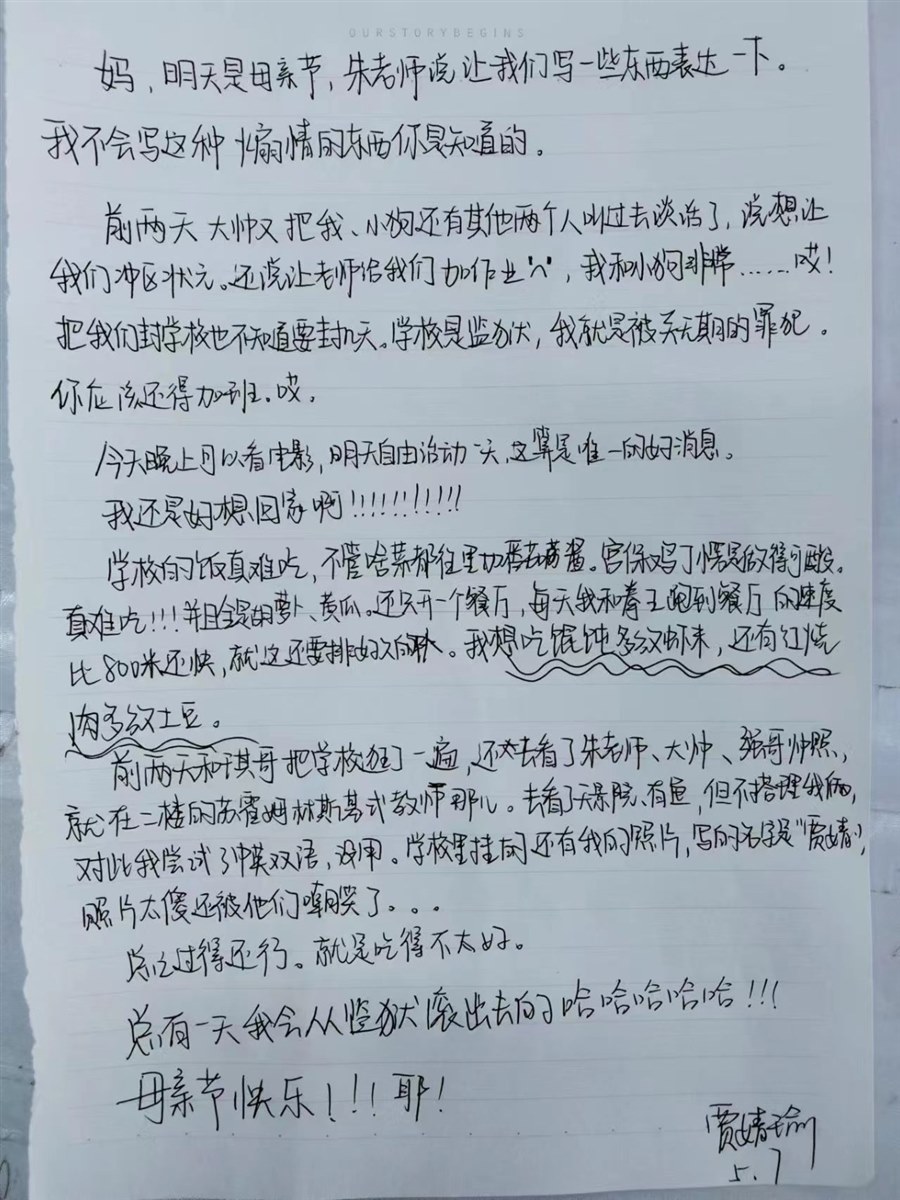 OURSTORYBEGINS
妈，明天是母亲节，朱老师说让我们写一些东西表达一下。
我不会写这种煽情的东西你是知道的。
前两天大帅又把我、小狗还有其他两个人叫过去谈话了，说想让
我们冲区状元。还说让老师给我们加作业'^'，我和小狗非常……哎！
把我们封学校也不知道要封几天。学校是监狱，我就是被关无期的罪犯。
你应该还得加班。哎。
今天晚上可以看电影，明天自由活动一天，这算是唯一的好消息。
我还是好想回家啊!!!!!!!!!!!
学校的饭真难吃，不管啥菜都往里加番茄酱。宫保鸡丁愣是做得可酸。
真难吃!!!并且全是胡萝卜、黄瓜。还只开一个餐厅，每天我和拳王跑到餐厅的速度
比800米还快，就这还要排好久的队。我想吃馄饨多放虾米，还有红烧
肉多放土豆。
前两天和琪哥把学校逛了一遍，还去看了朱老师、大帅、强哥帅照，
就在二楼的苏霍姆林斯基式教师那儿。去看了天景院，有鱼，但不搭理我俩，
对此我尝试了中英双语，没用。学校里挂的还有我的照片，写的名字是“贾婧”，
照片太傻还被他们嘲笑了。。。
总之过得还行。就是吃得不太好。
总有一天我会从监狱滚出去的哈哈哈哈哈!!!
母亲节快乐!!!耶!
贾婧瑜
5.7